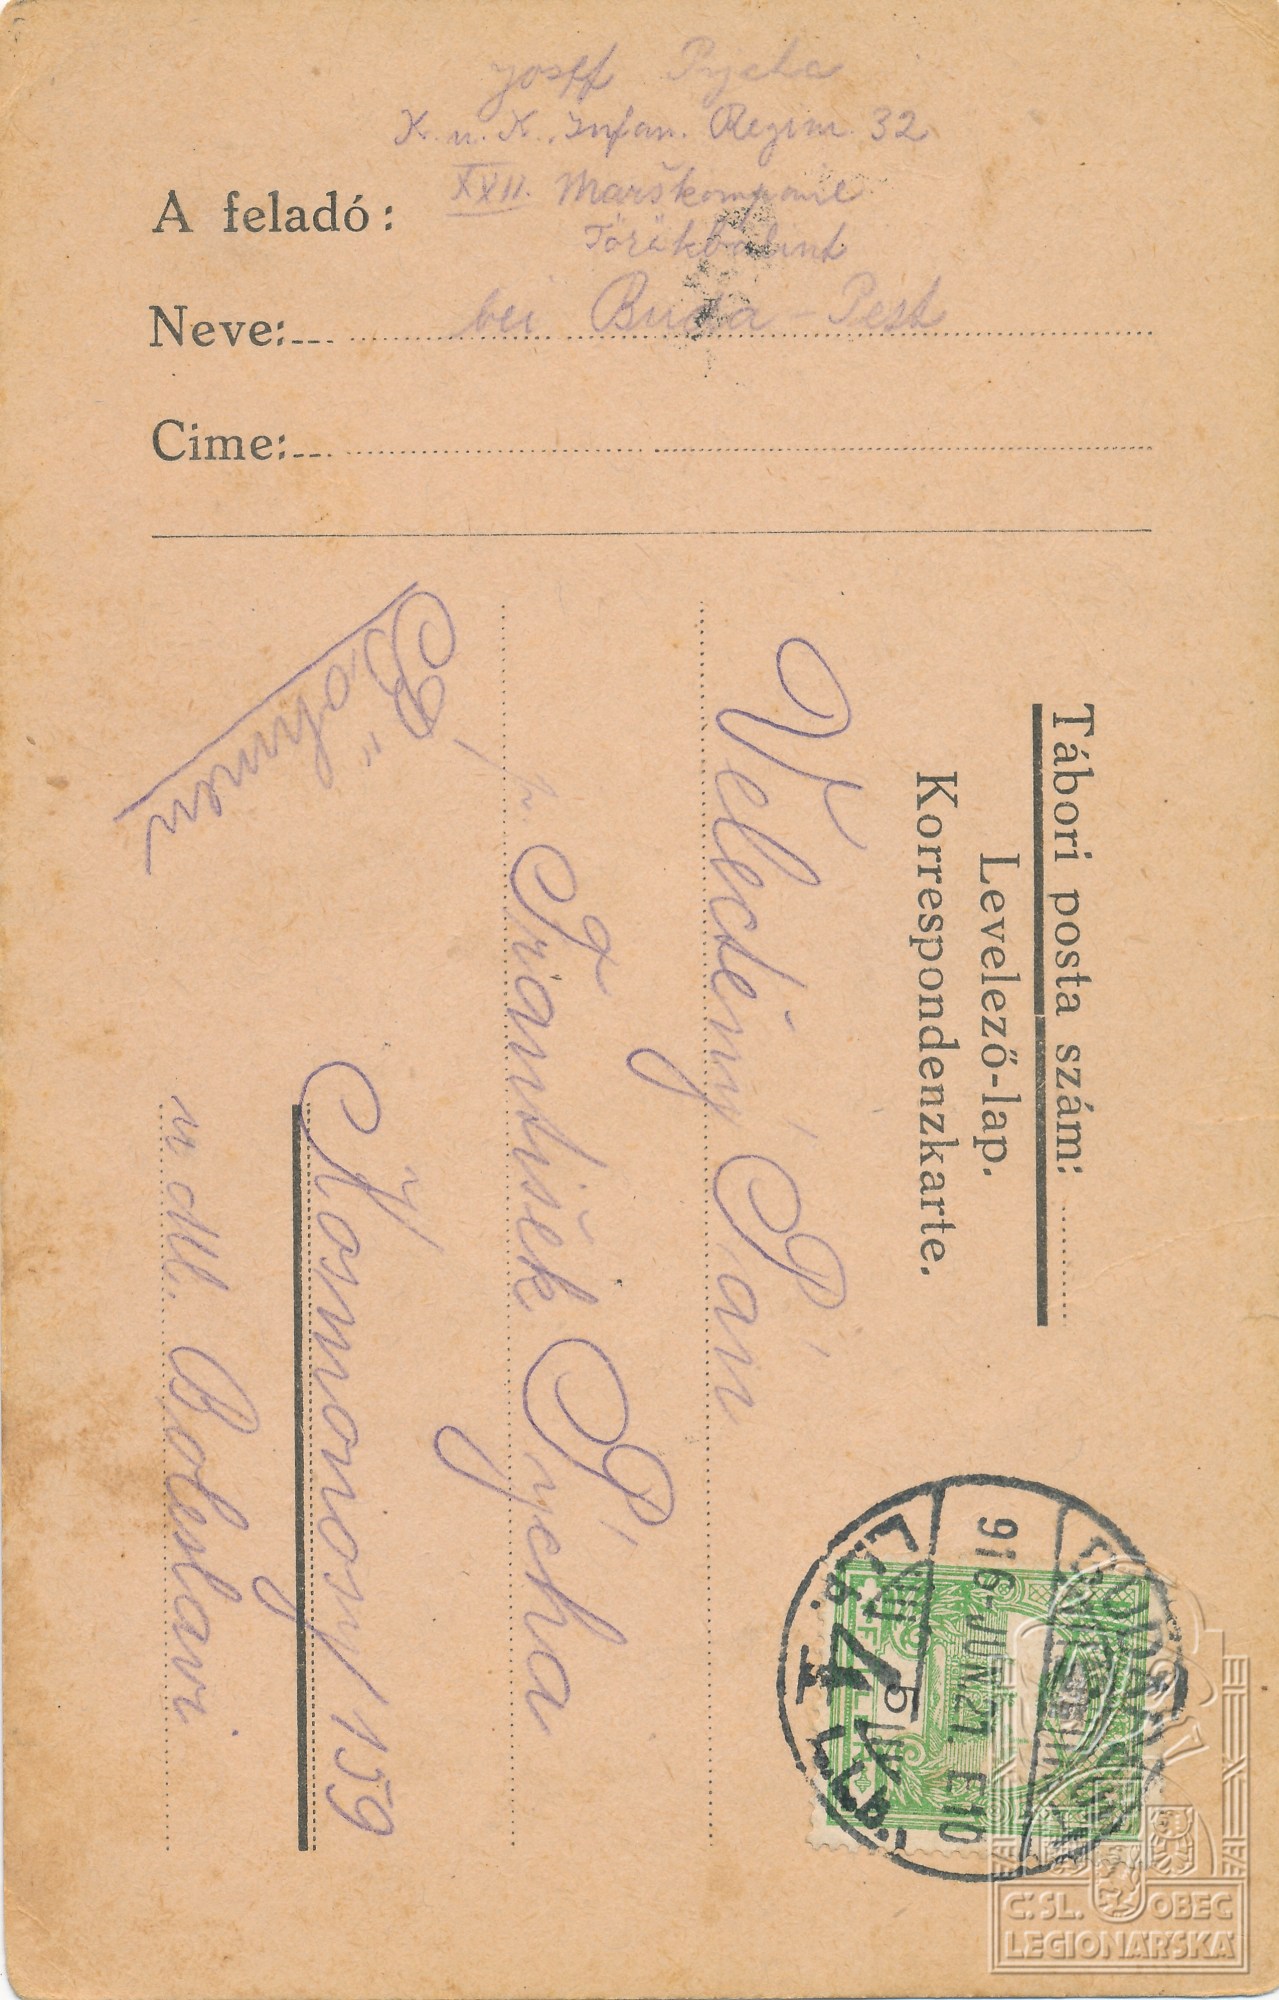 Josef Pycha
K. u. K. Infan. Regim. 32
XXII. Marškompanie
Törökbálint
bei Buda-Pest
A feladó:
Neve:
Cime:
Tábori posta szám:
Levelező-lap.
Korrespondenzkarte.
Velectěný Pán
p. František Pýcha
v Kosmonosy 159
u Ml. Boleslavi
Böhmen
916 JUN 21. E 10
5
Č. SL. OBEC
LEGIONÁŘSKÁ